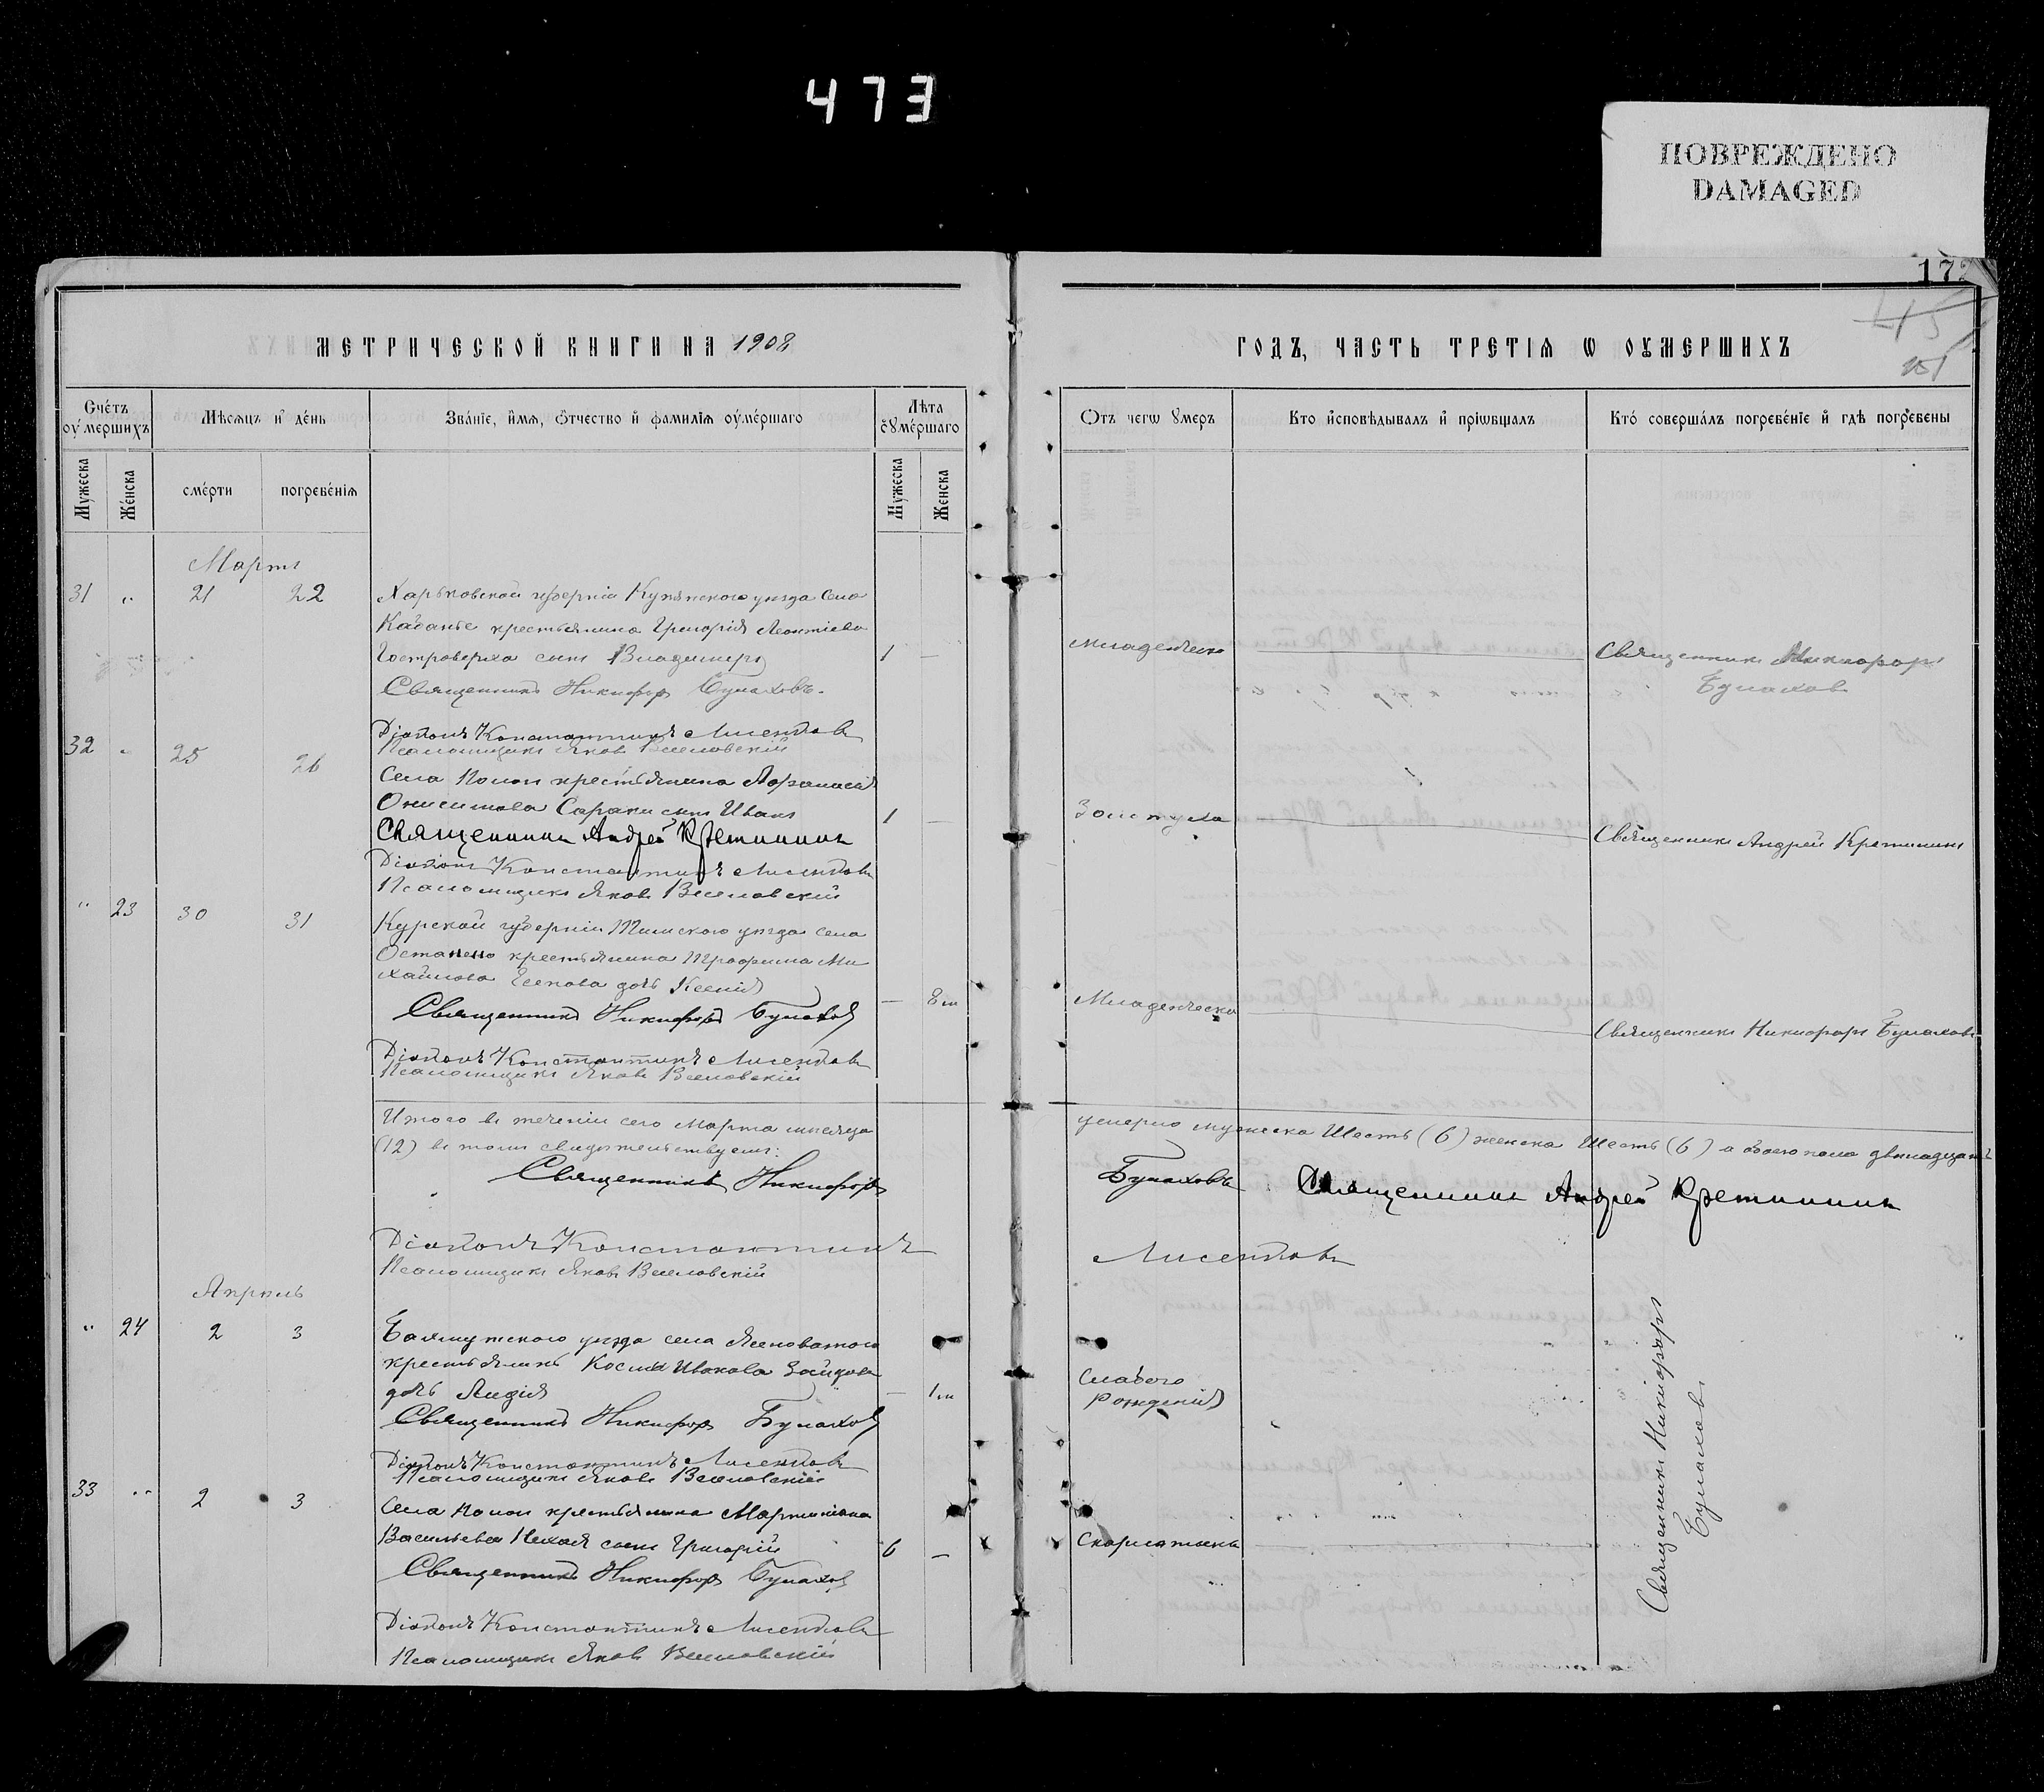 473
ПОВРЕЖДЕНО
DAMAGED
172
45
МЕТРИЧЕСКОЙ КНИГИ НА 1908
ГОДЪ, ЧАСТЬ ТРЕТІѦ Ѡ ОУМЕРШИХЪ
Счетъ оумершихъ
Мѣсяцъ и день
Званіе, имя, отчество и фамилія оумершаго
Лѣта оумершаго
Отъ чегѡ умеръ
Кто исповѣдывалъ и пріѡбщалъ
Кто совершалъ погребеніе и гдѣ погребены
Мужеска
Женска
смерти
погребенія
Мужеска
Женска
Мартъ
31 " 21 22 Харьковской губерніи Купянскаго уѣзда села
Кабанье крестьянина Григорія Леонтіева
Гостроверха сынъ Владимиръ 1 — младенческ Священникъ Никифоръ
Священникъ Никифоръ Булаховъ. Булаховъ
Діаконъ Константинъ Лисенковъ
Псаломщикъ Яковъ Веселовскій
32 " 25 26
Села Попов крестьянина Афанасія
Онисимова Сараки сынъ Иванъ 1 — Золотуха
Священникъ Андрей Кретининъ Священникъ Андрей Кретининъ
Діаконъ Константинъ Лисенковъ
Псаломщикъ Яковъ Веселовскій
" 23 30 31 Курской губерніи Тимскаго уѣзда села
крестьянина Трофима Ми
хайлова Есекова дочь Ксенія — 8 м Младенческ
Священникъ Никифоръ Булаховъ Священникъ Никифоръ Булаховъ
Діаконъ Константинъ Лисенковъ
Псаломщикъ Яковъ Веселовскій
Итого въ теченіи сего Марта мѣсяца умерло мужеска Шесть (6) женска Шесть (6) а обоего пола двѣнадцать
(12) въ томъ свидѣтельствуемъ:
Священникъ Никифоръ Булаховъ Священникъ Андрей Кретининъ
Діаконъ Константинъ Лисенковъ
Псаломщикъ Яковъ Веселовскій
Апрѣль
" 24 2 3 Бахмутскаго уѣзда села Ясиноватаго
крестьянина Космы Иванова Зайцева
дочь Лидія — 1 м Слабого рожденія
Священникъ Никифоръ Булаховъ
Діаконъ Константинъ Лисенковъ
Псаломщикъ Яковъ Веселовскій
33 " 2 3 Села Попов крестьянина Мартиніана
Васильева сынъ Григорій 6 — Скарлатина
Священникъ Никифоръ Булаховъ
Діаконъ Константинъ Лисенковъ
Псаломщикъ Яковъ Веселовскій
Священникъ Никифоръ
Булаховъ